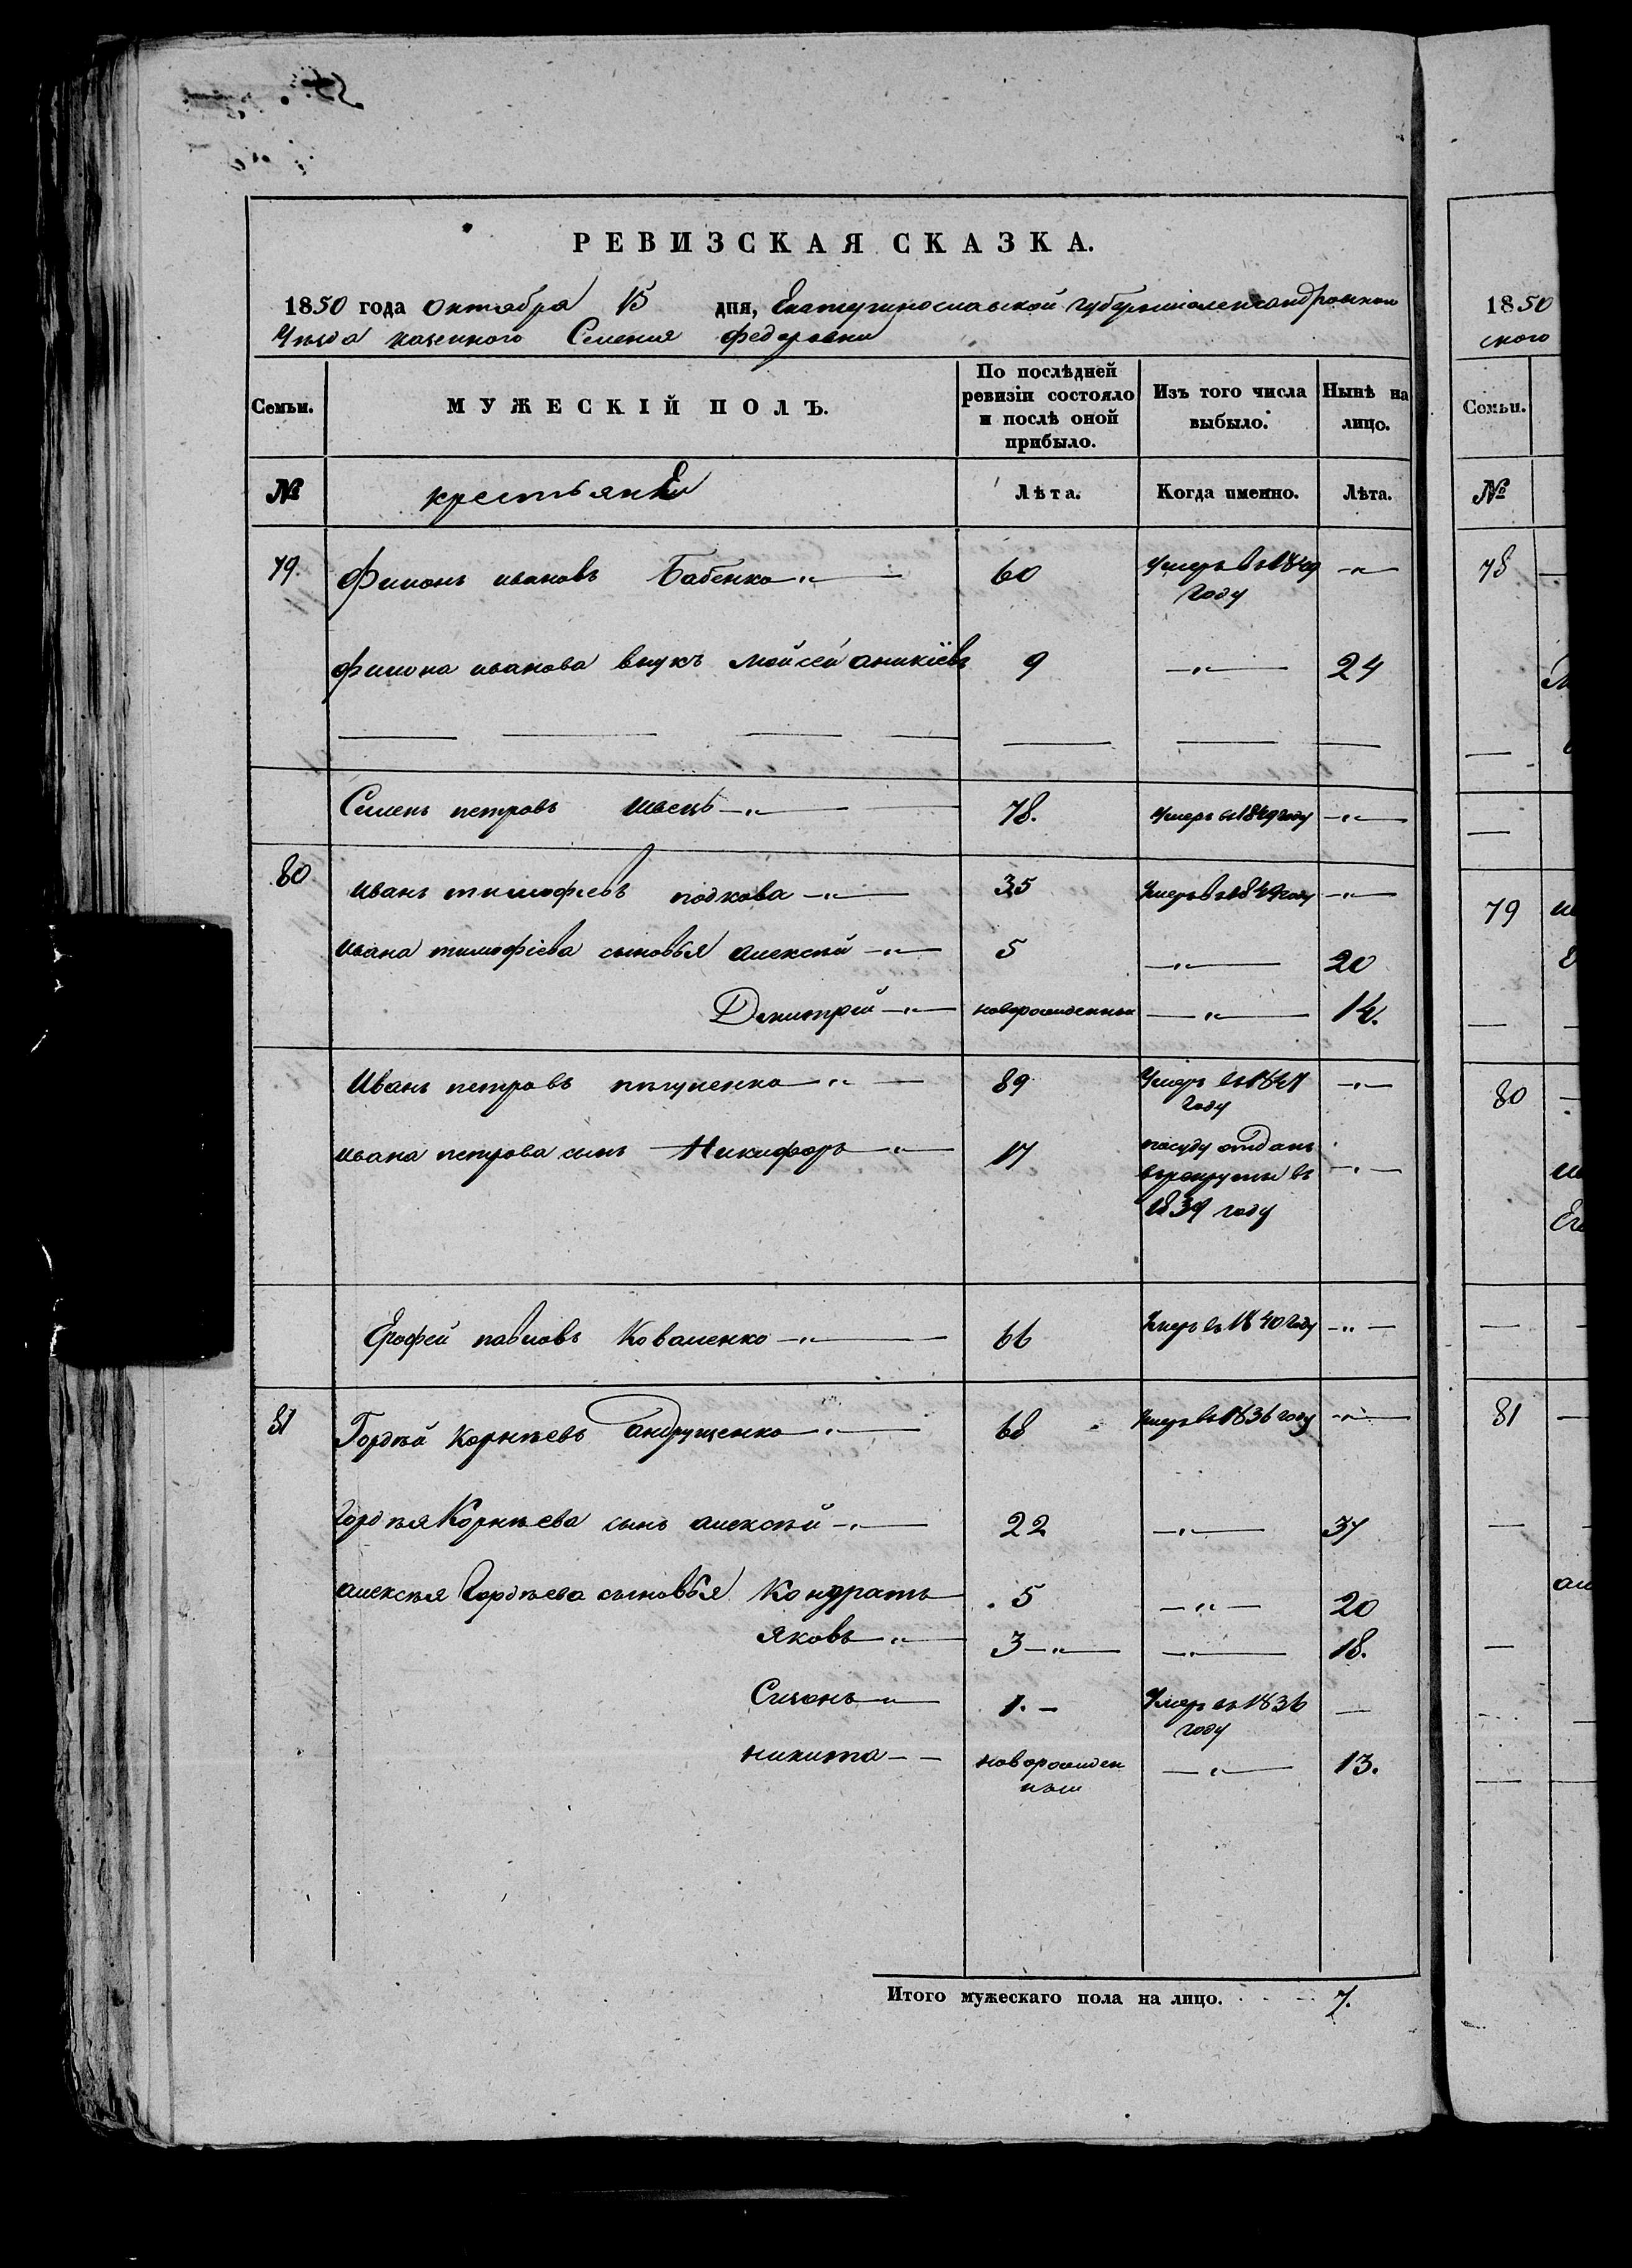 РЕВИЗСКАЯ СКАЗКА.
1850 года октября 15 дня, Екатеринославской губернии александровскаго
Уезда казенного Селения федоровки
Семьи. МУЖЕСКІЙ ПОЛЪ. По послѣдней ревизіи состояло и послѣ оной прибыло. Изъ того числа выбыло. Нынѣ на лицо.
№ крестьянЕ Лѣта. Когда именно. Лѣта.
79. Филонъ ивановъ Бабенко 60 Умеръ въ 1849 году
филона иванова внукъ мойсей аникіевъ 9 24
Семенъ петровъ швець 78. Умеръ въ 1849 году
80 иванъ тимофѣевъ подкова 35 Умеръ въ 1849 году
ивана тимофіева сыновья алексѣй 5 20
Демитрей новорожденный 14.
Иванъ петровъ 89 Умеръ въ 1841 году
ивана петрова сынъ Никифоръ 17 посуду отданъ
врекруты въ
1839 году
Ерофей павловъ Коваленко 66 Умеръ въ 1840 году
81 Гордѣй корнѣевъ андрущенко 68 Умеръ въ 1836 году
Гордѣя Корнѣева сынъ алексѣй 22 37
алексѣя Гордѣева сыновья Кондратъ 5 20
яковъ 3 18.
Симонъ 1. Умеръ въ 1836 году
никита новорожден
ный 13.
Итого мужескаго пола на лицо. 7.
1850
ского
Семьи.
№
78
79
80
81